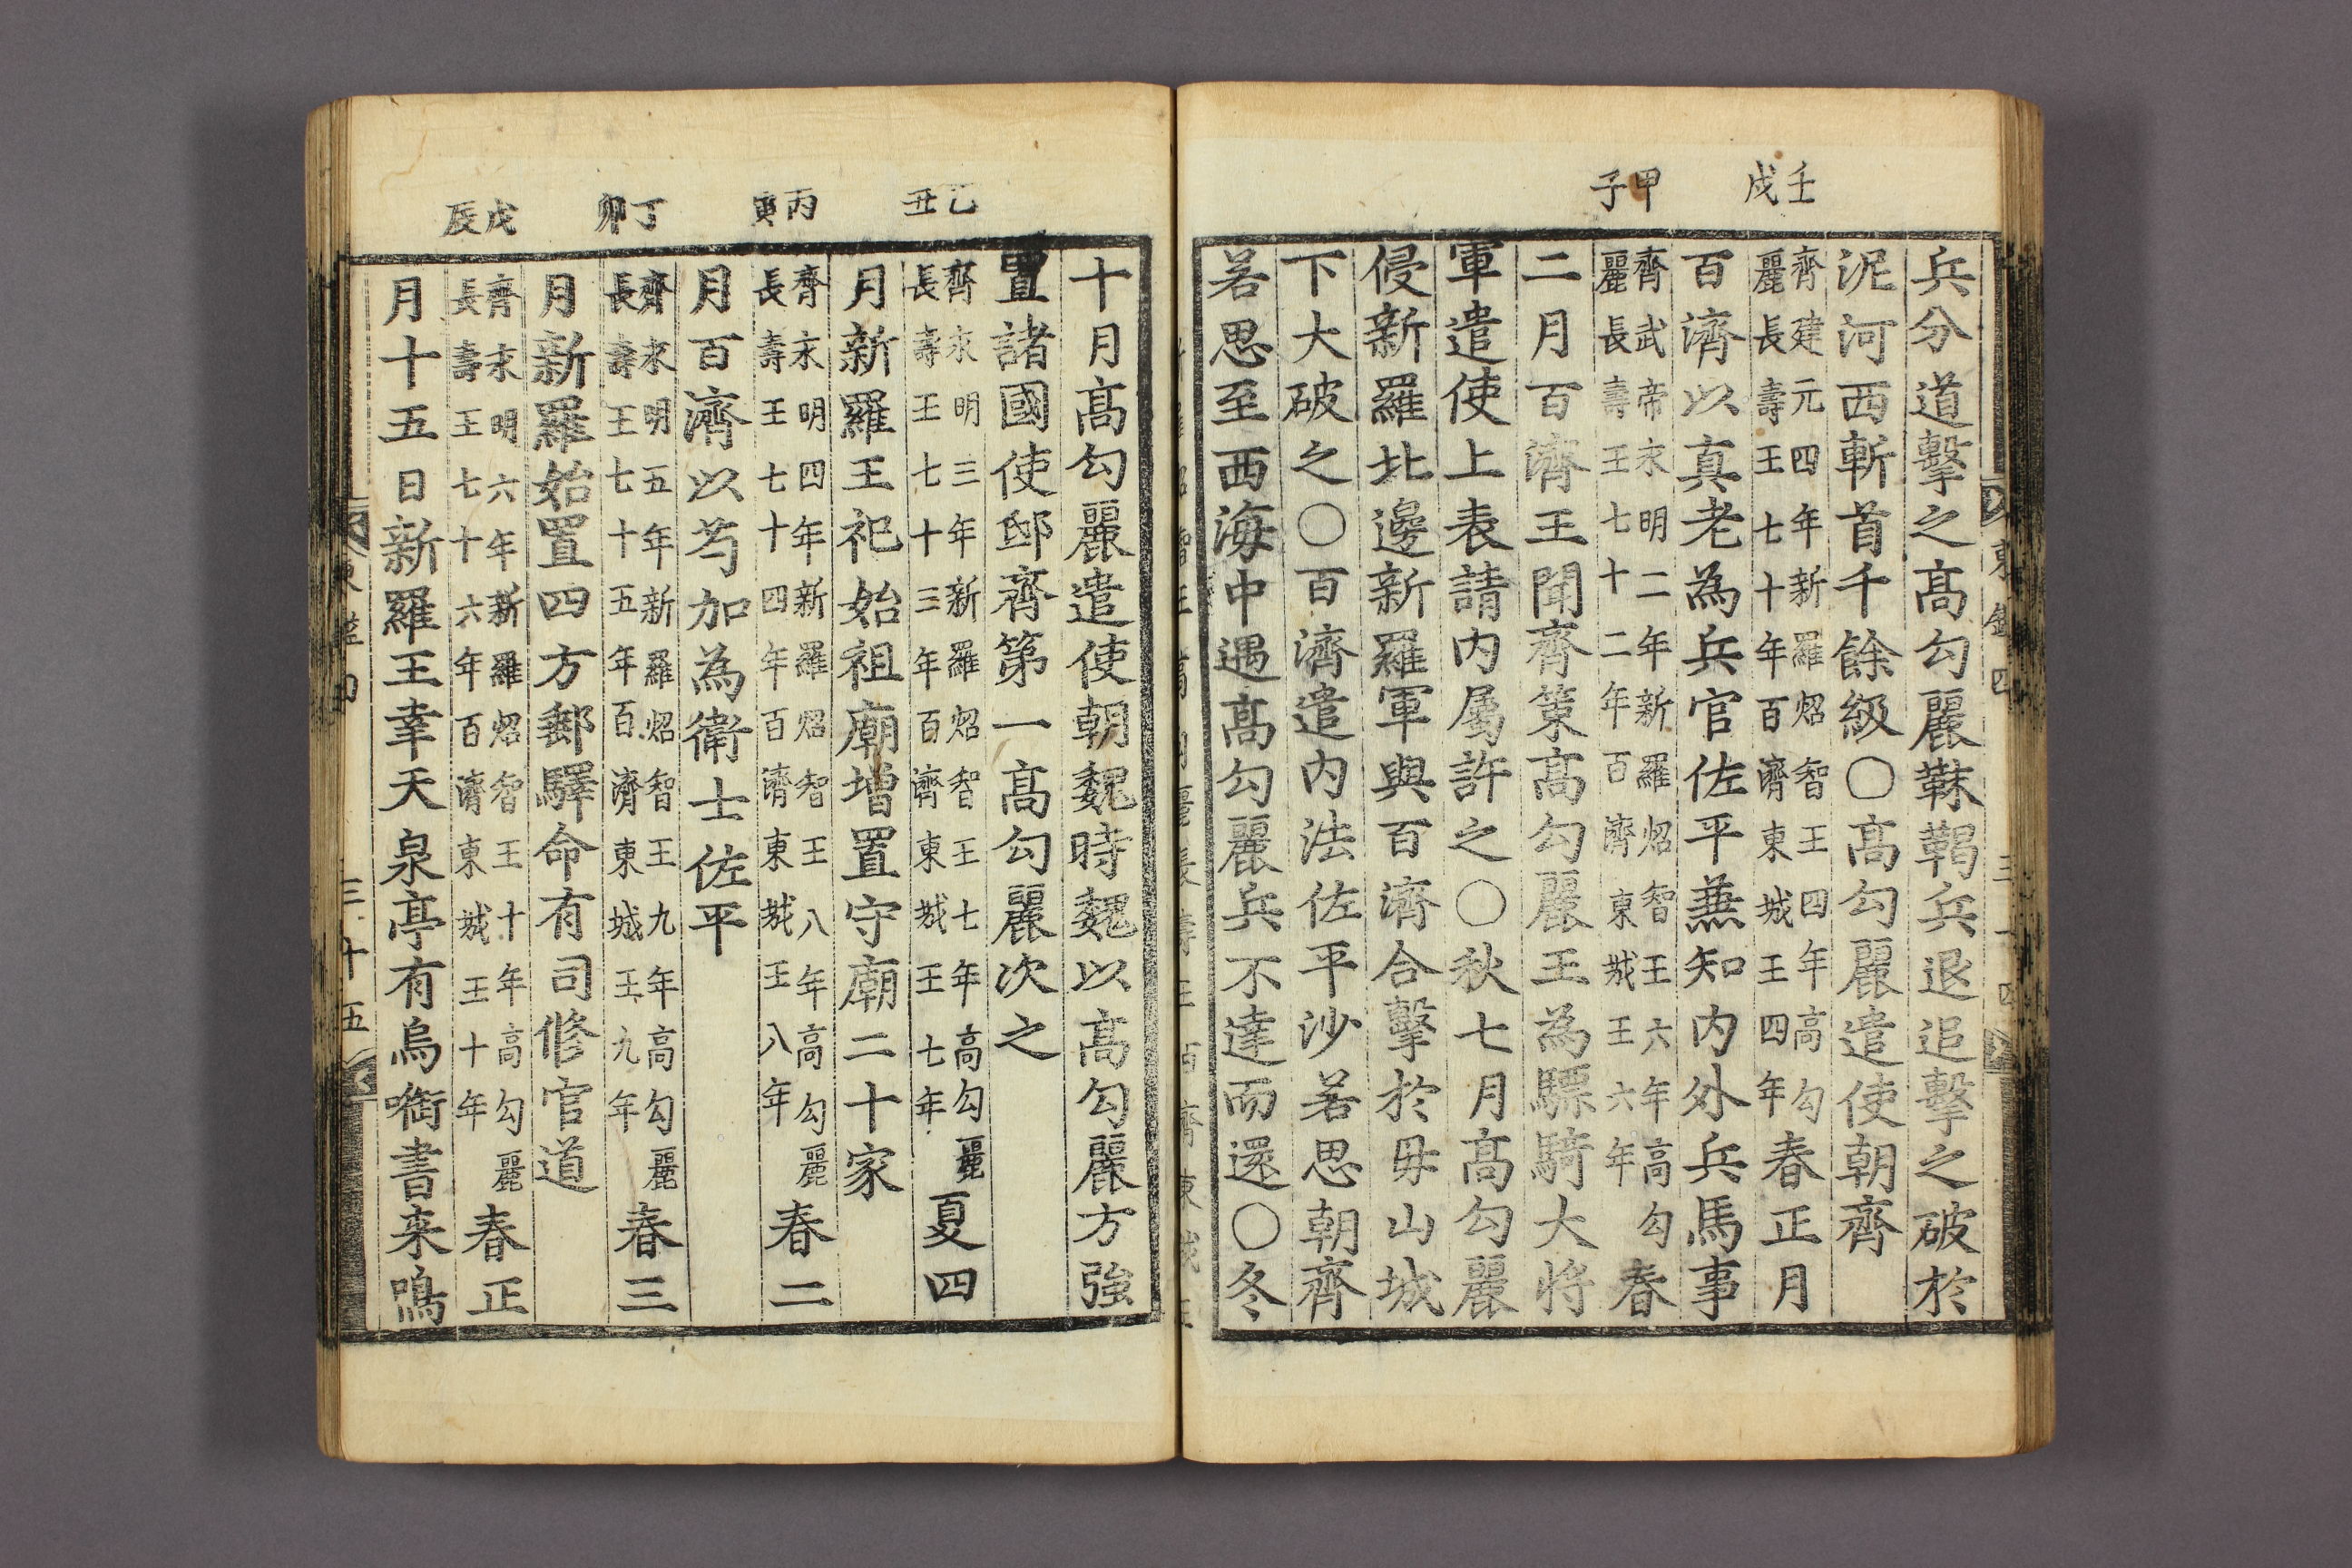 壬戌
甲子
兵分道擊之高勾麗靺鞨兵退追擊之破於
泥河西斬首千餘級〇高勾麗遣使朝齊
齊建元四年新羅炤智王四年高勾
麗長壽王七十年百濟東城王四年
春正月
百濟以真老為兵官佐平兼知內外兵馬事
齊武帝永明二年新羅炤智王六年高勾
麗長壽王七十二年百濟東城王六年
春
二月百濟王聞齊策高勾麗王為驃騎大將
軍遣使上表請內屬許之〇秋七月高勾麗
侵新羅北邊新羅軍與百濟合擊於毋山城
下大破之〇百濟遣內法佐平沙若思朝齊
若思至西海中遇高勾麗兵不達而還〇冬
乙丑
丙寅
丁卯
戊辰
十月高勾麗遣使朝魏時魏以高勾麗方強
置諸國使邸齊第一高勾麗次之
齊永明三年新羅炤智王七年高勾麗
長壽王七十三年百濟東城王七年
夏四
月新羅王祀始祖廟增置守廟二十家
齊永明四年新羅炤智王八年高勾麗
長壽王七十四年百濟東城王八年
春二
月百濟以芍加為衛士佐平
齊永明五年新羅炤智王九年高勾麗
長壽王七十五年百濟東城王九年
春三
月新羅始置四方郵驛命有司修官道
齊永明六年新羅炤智王十年高勾麗
長壽王七十六年百濟東城王十年
春正
月十五日新羅王幸天泉亭有烏啣書来鳴
三十五